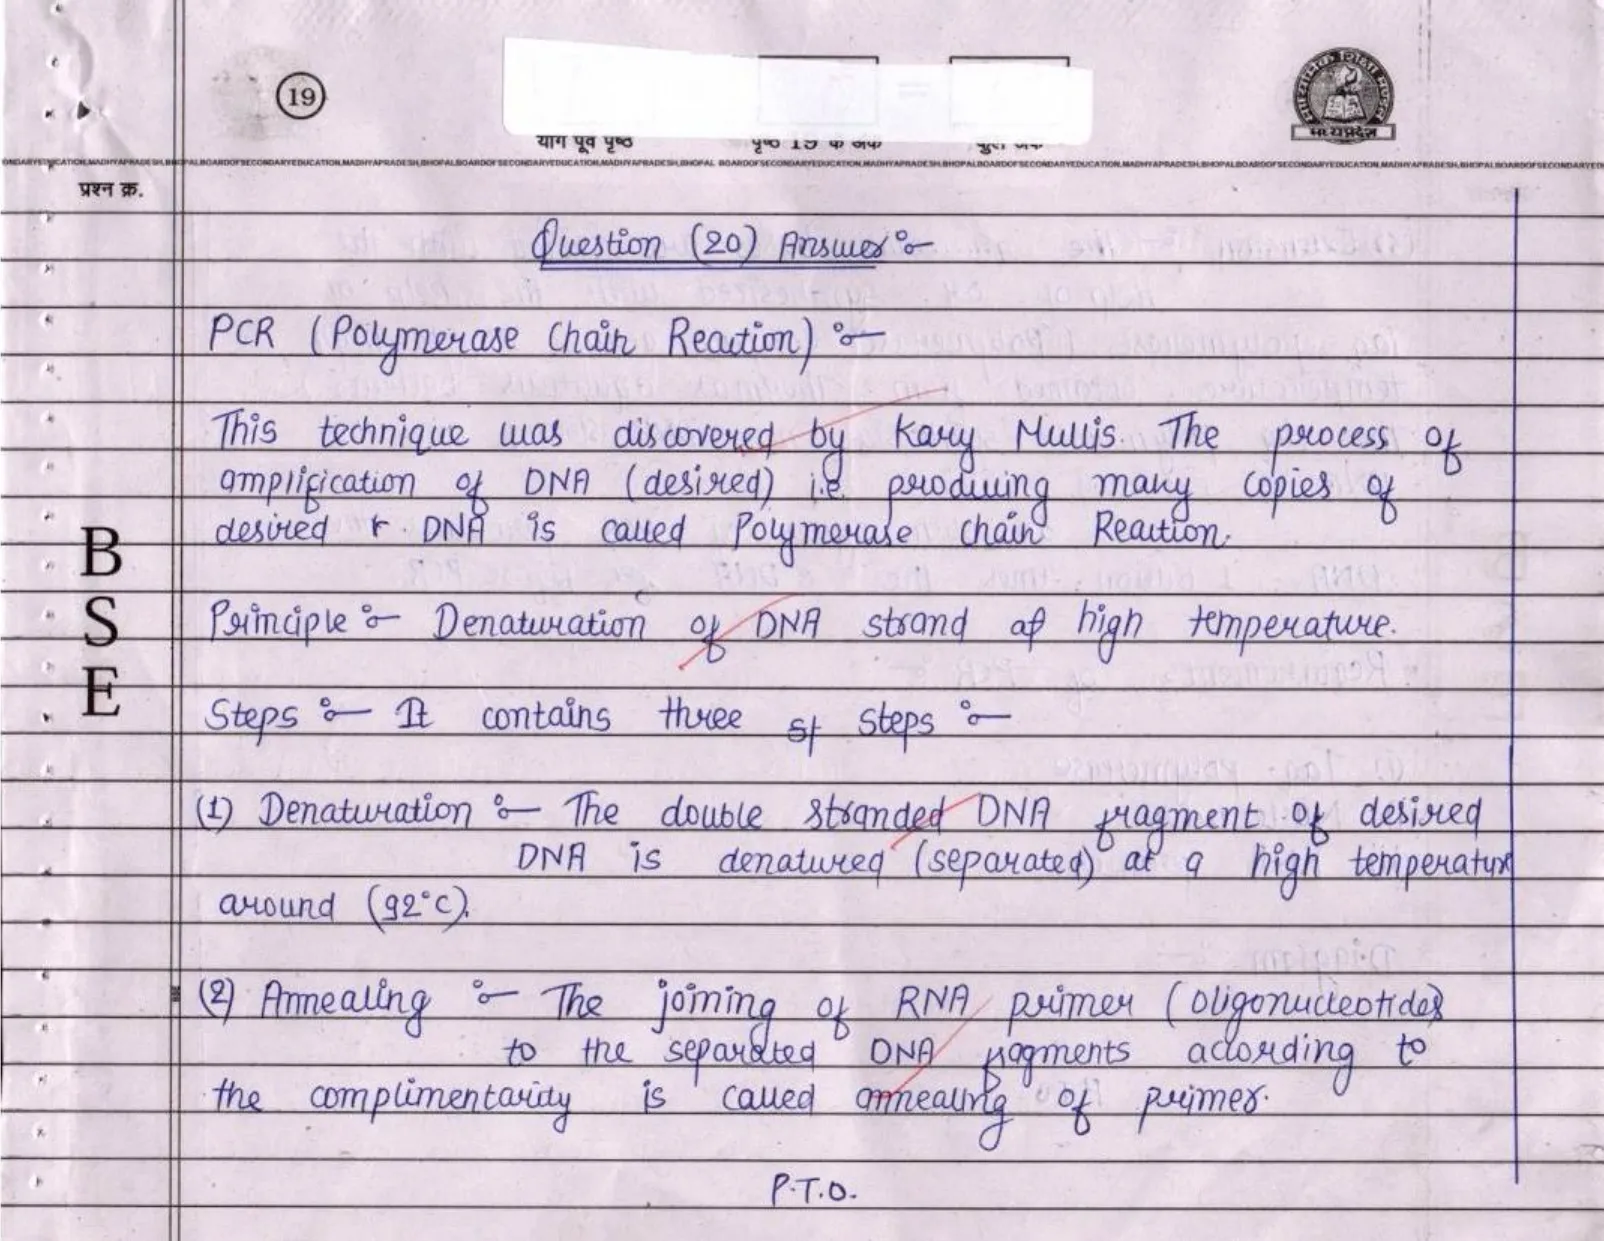 19
योग पूर्व पृष्ठ पृष्ठ 19 के अंक कुल अंक
माध्यमिक शिक्षा मण्डल
मध्यप्रदेश
BOARDOFSECONDARYEDUCATION,MADHYAPRADESH,BHOPAL BOARDOFSECONDARYEDUCATION,MADHYAPRADESH,BHOPAL
प्रश्न क्र.
Question (20) Answer :-
PCR (Polymerase Chain Reaction) :-
This technique was discovered by Kary Mullis. The process of
amplification of DNA (desired) i.e. producing many copies of
desired r. DNA is called Polymerase chain Reaction.
Principle :- Denaturation of DNA strand at high temperature.
Steps :- It contains three st steps :-
(1) Denaturation :- The double stranded DNA fragment of desired
DNA is denatured (separated) at a high temperature
around (92°C).
(2) Annealing :- The joining of RNA primer (oligonucleotides)
to the separated DNA fragments according to
the complimentarity is called annealing of primer.
P.T.O.
B
S
E